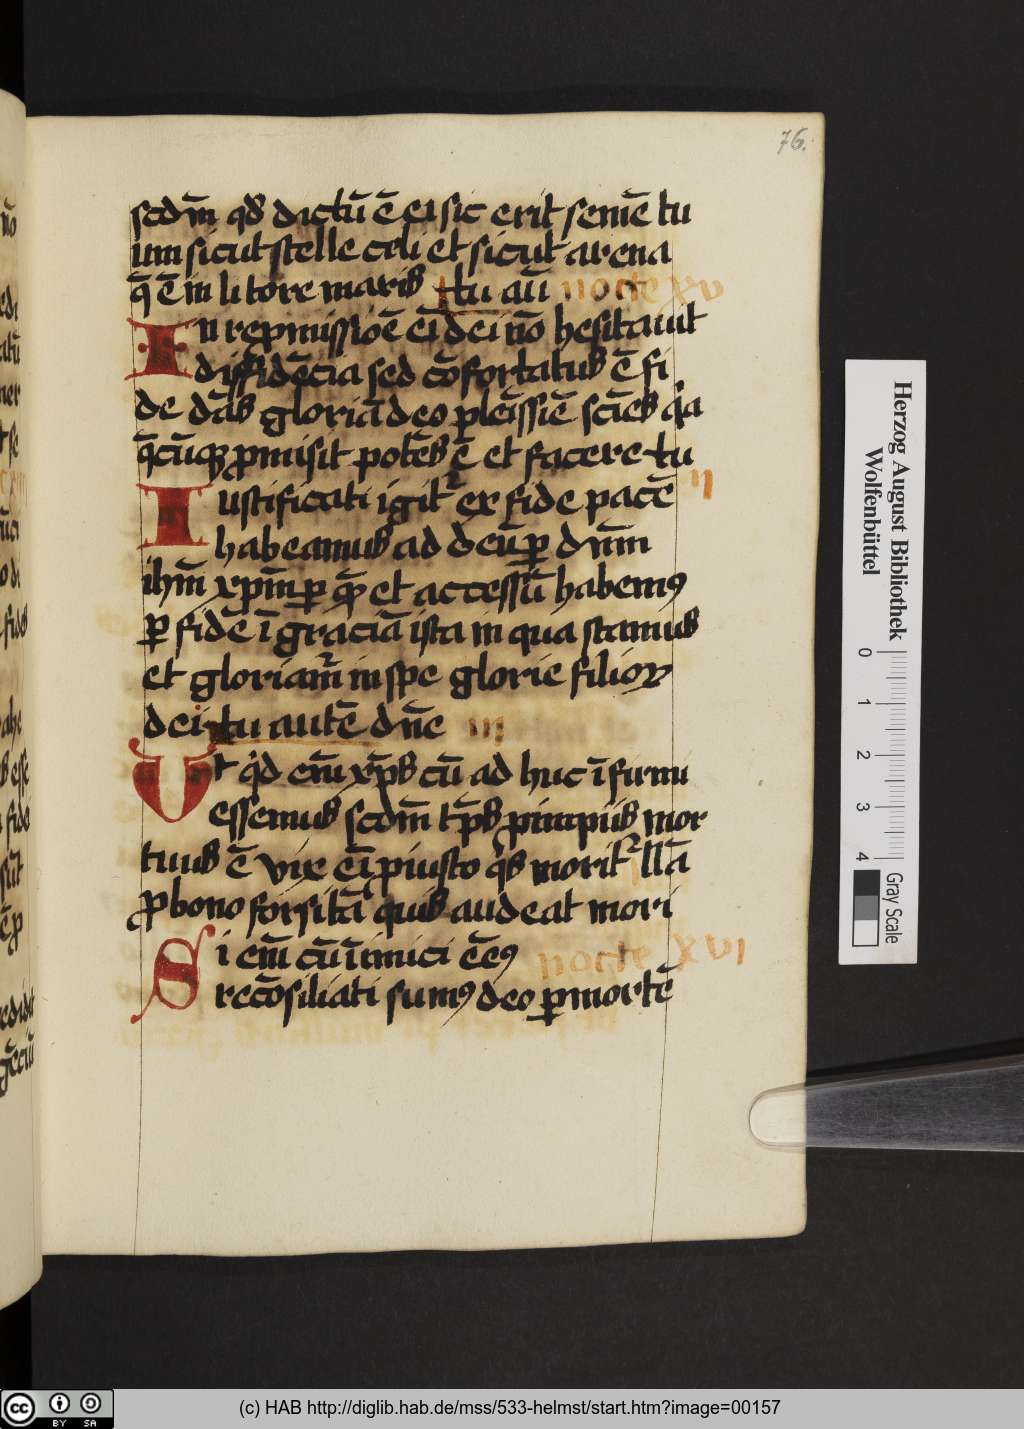 76.
scdm̄ qd̄ dictū ē ei sic erit semē tu
um sicut stelle celi et sicut arena
q̄ ē in litore maris tu aū nocte xv
In repmissiōe ei dei nō hesitauit
diffidēcia sed cōfortatus ē fi
de dās gloriā deo plēissiē sciēs qa
q̄cūq; promisit potēs ē et facere tu
Iustificati igit᷑ ex fide pacē II
habeamus ad deū p̱ dnm̄
ihm̄ xpm̄ p̱ quē et accessū habemꝰ
p̱ fidē ī graciā ista in qua stamus
et gloriam᷑ in spe glorie filioꝝ
dei tu autē dn̄e III
Ut qd em̄ xp̄s cū ad huc īfirmi
essemus scdm̄ tp̄s p̱ impiis mor
tuus ē vix ei p iusto qs morit᷑ llā
Pro bono forsitā quis audeat mori
Si em̄ cū inimici eēmꝰ nocte XVI
recōsiliati sumꝰ deo p̱ mortē
Herzog August Bibliothek
Wolfenbüttel
0 1 2 3 4
Gray Scale
cc BY SA
(c) HAB http://diglib.hab.de/mss/533-helmst/start.htm?image=00157